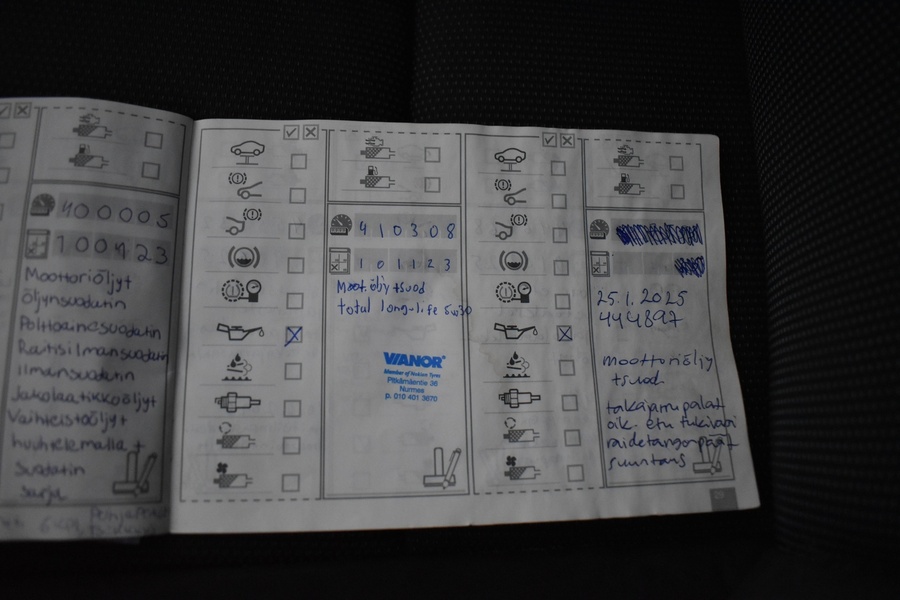 400005
100423
Moottoriöljyt
öljynsuodatin
Polttoainesuodatin
Raitisilmansuodatin
ilmansuodatin
Jakolaatikkoöljyt
Vaihteistoöljyt
huuhtelemalla +
suodatin
sarja
410308
101123
Moot.öljy+suod
total long-life 5w30
VIANOR
Member of Nokian Tyres
Pitkämäentie 36
Nurmes
p. 010 401 3670
25.1.2025
444897
moottoriöljy
+suod.
takajarrupalat
oik. etu tukivarsi
raidetangonpäät
suuntaus
29